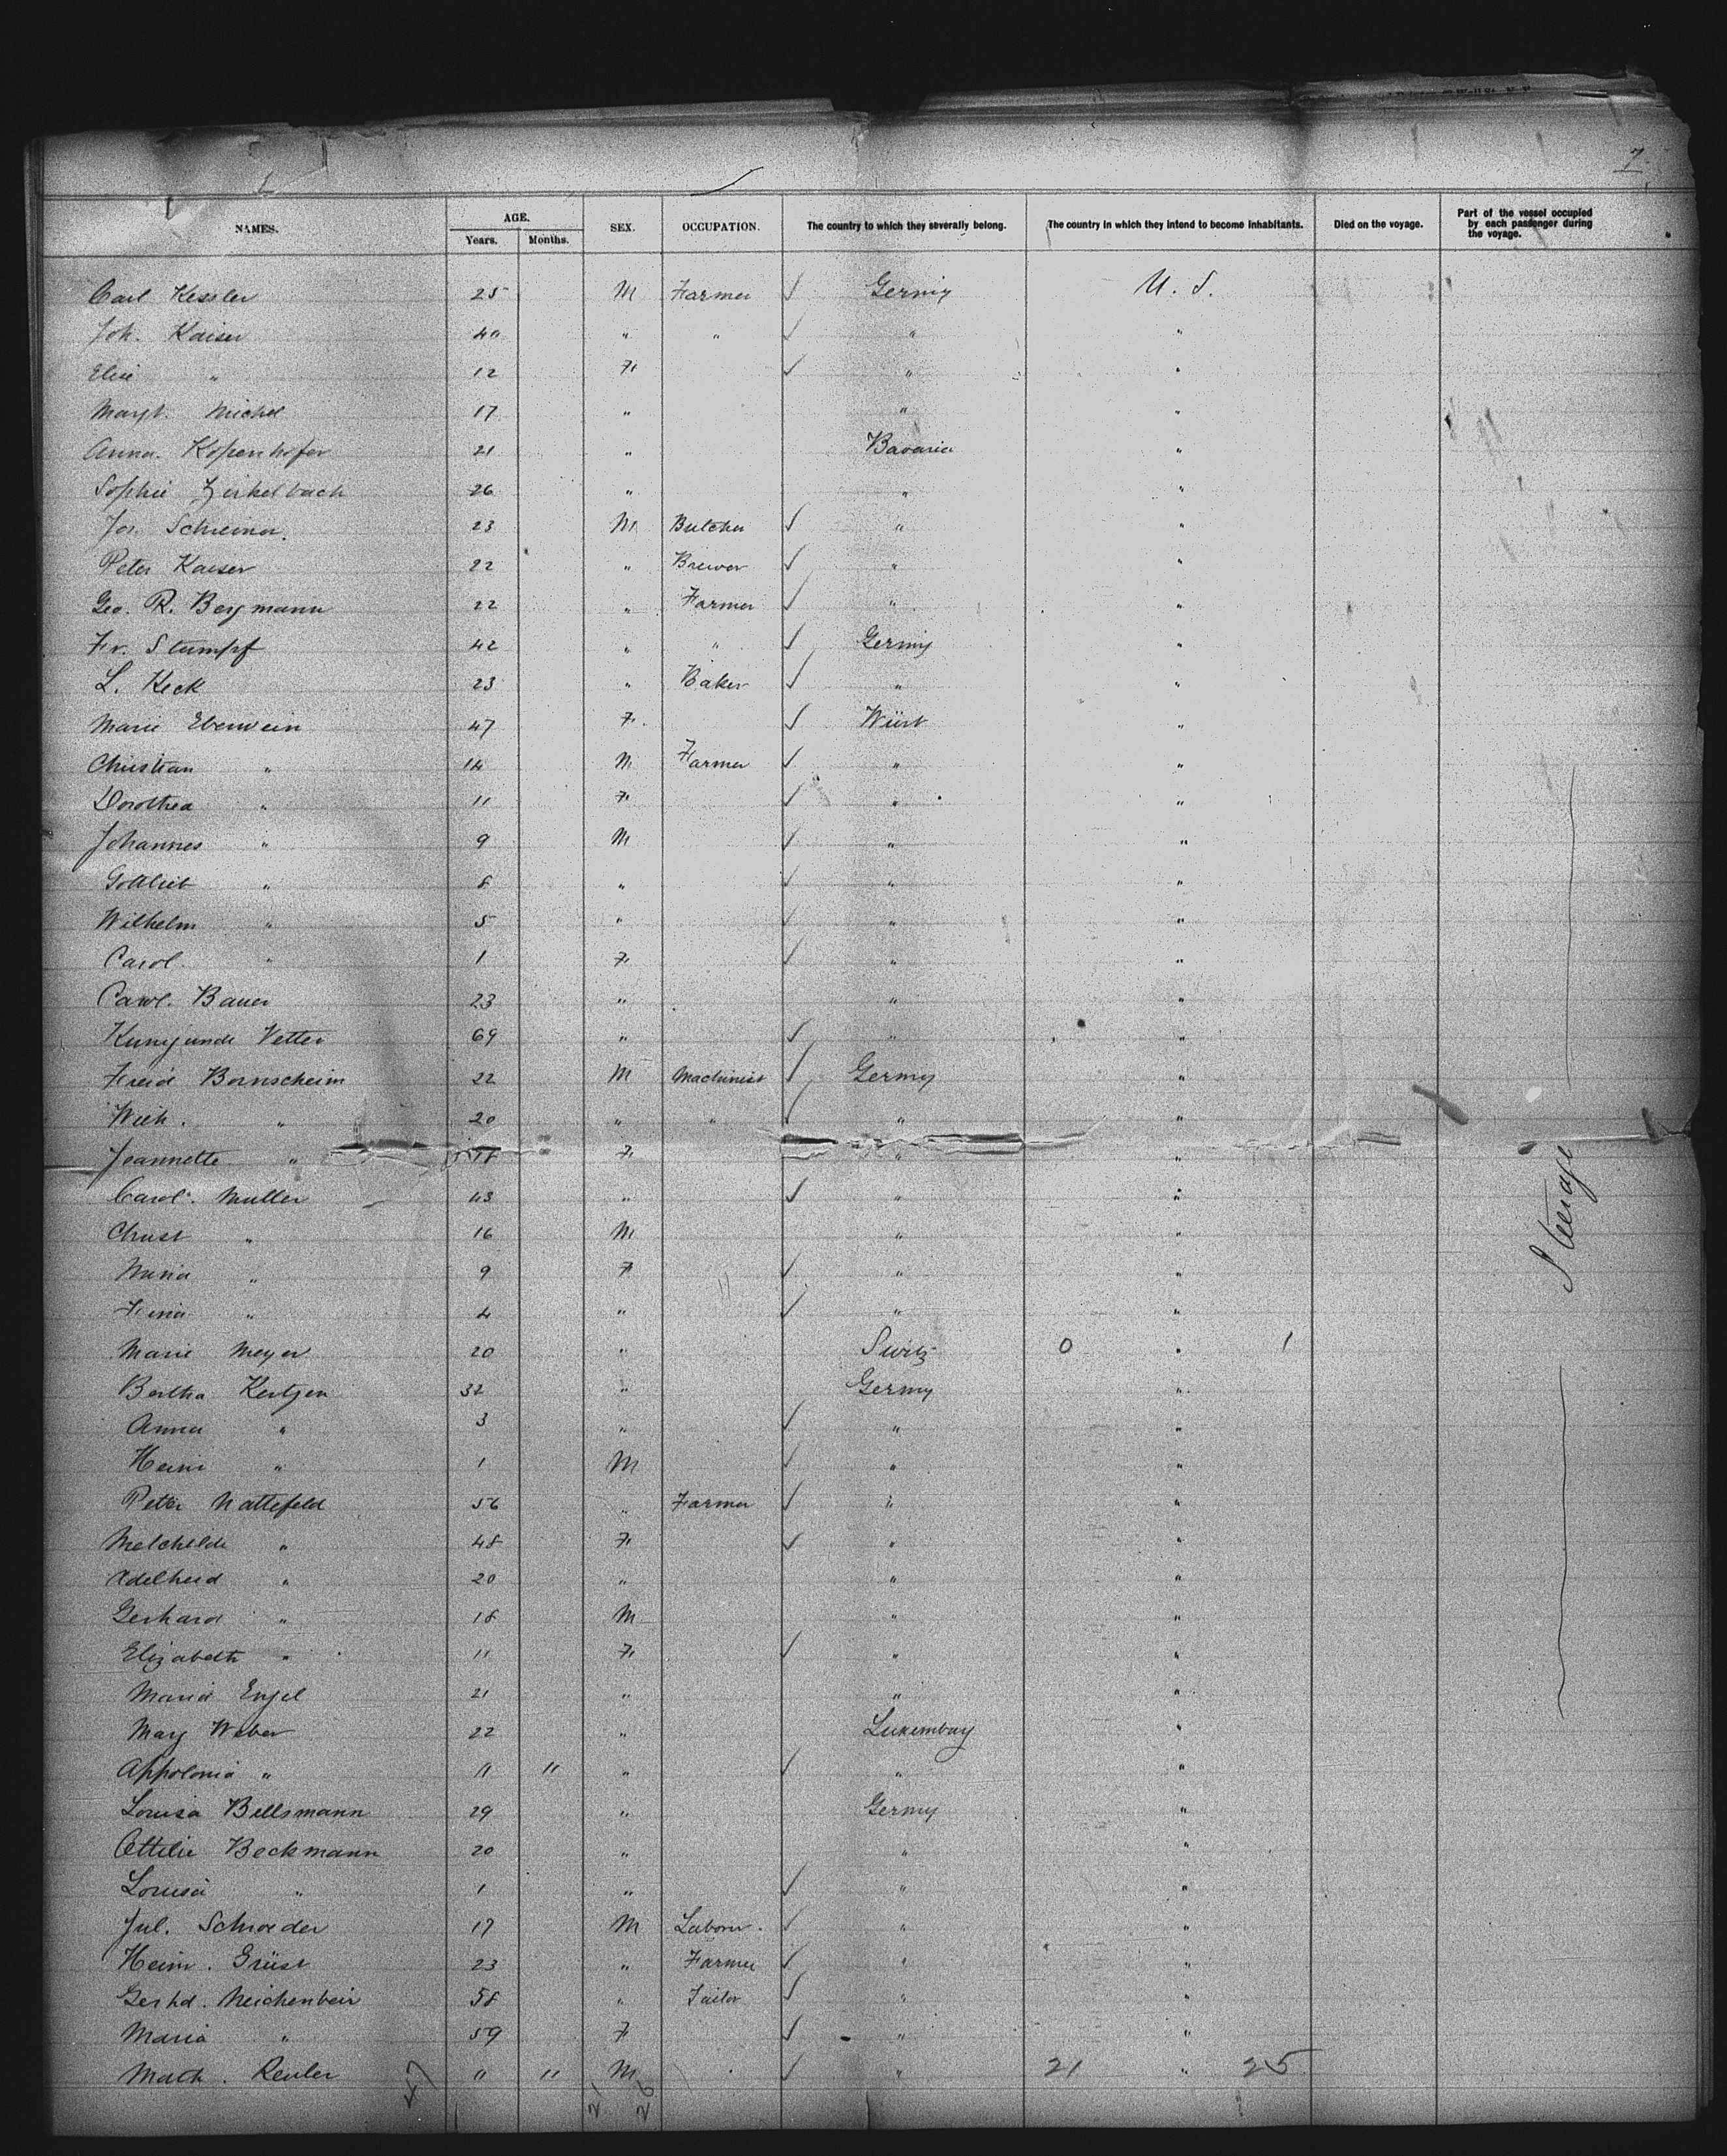 7
NAMES. AGE. Years. Months. SEX. OCCUPATION. The country to which they severally belong. The country in which they intend to become inhabitants. Died on the voyage. Part of the vessel occupied by each passenger during the voyage.
Carl Kessler 25 M Farmer ✓ Germy U. S.
Joh. Kaiser 40 " " ✓ " "
Elise " 12 F. ✓ " "
Margt. Michel 17 " " "
Anna. Kopenhofer 21 " Bavaria "
Sophie Zirkelbach 26 " " "
Jos. Schreiner. 23 M Butcher ✓ " "
Peter Kaeser 22 " Brewer ✓ " "
Geo. R. Bergmann 22 " Farmer ✓ " "
Fr. Stumpf 42 " " ✓ Germy "
L. Keck 23 " Baker ✓ " "
Marie Eberwein 47 F. ✓ Würt "
Christian " 14 M Farmer ✓ " "
Dorothea " 11 F. ✓ " "
Johannes " 9 M ✓ " "
Gottlieb " 8 " ✓ " "
Wilhelm " 5 " ✓ " "
Carol. " 1 F. ✓ " "
Carol. Bauer 23 " " "
Kunigunde Vetter 69 " ✓ " "
Freid Bornscheim 22 M Machinist ✓ Germy "
Wilh. " 20 " " ✓ " "
Jeannette " 18 F. " "
Carol. Muller 43 " ✓ " "
Christ " 16 M " "
Maria " 9 F ✓ " "
" 4 " ✓ " "
Marie Meyer 20 " Switz 0 " 1
Bertha Kertgen 32 " Germy "
Anna " 3 " ✓ " "
Heinr " 1 M ✓ " "
Peter Nattefeld 56 " Farmer ✓ " "
Melchilde " 48 F. ✓ " "
Adelheid " 20 " " "
Gerhard " 18 M " "
Elizabeth " 11 F. ✓ " "
Maria Engel 21 " " "
Mary Weber 22 " Luxemburg "
Appolonia " " 11 " ✓ " "
Louisa Billsmann 29 " Germy "
Ottilie Beckmann 20 " " "
Louisa " 1 " ✓ " "
Jul. Schroeder 17 M Laborr. ✓ " "
Heinr. Grüst 23 " Farmer ✓ " "
Gerhd. Meichenbeir 58 " Tailor ✓ " "
Maria " 59 F ✓ " "
Math. Reuler " 11 M ✓ " 21 " 25
47 21 26
Steerage